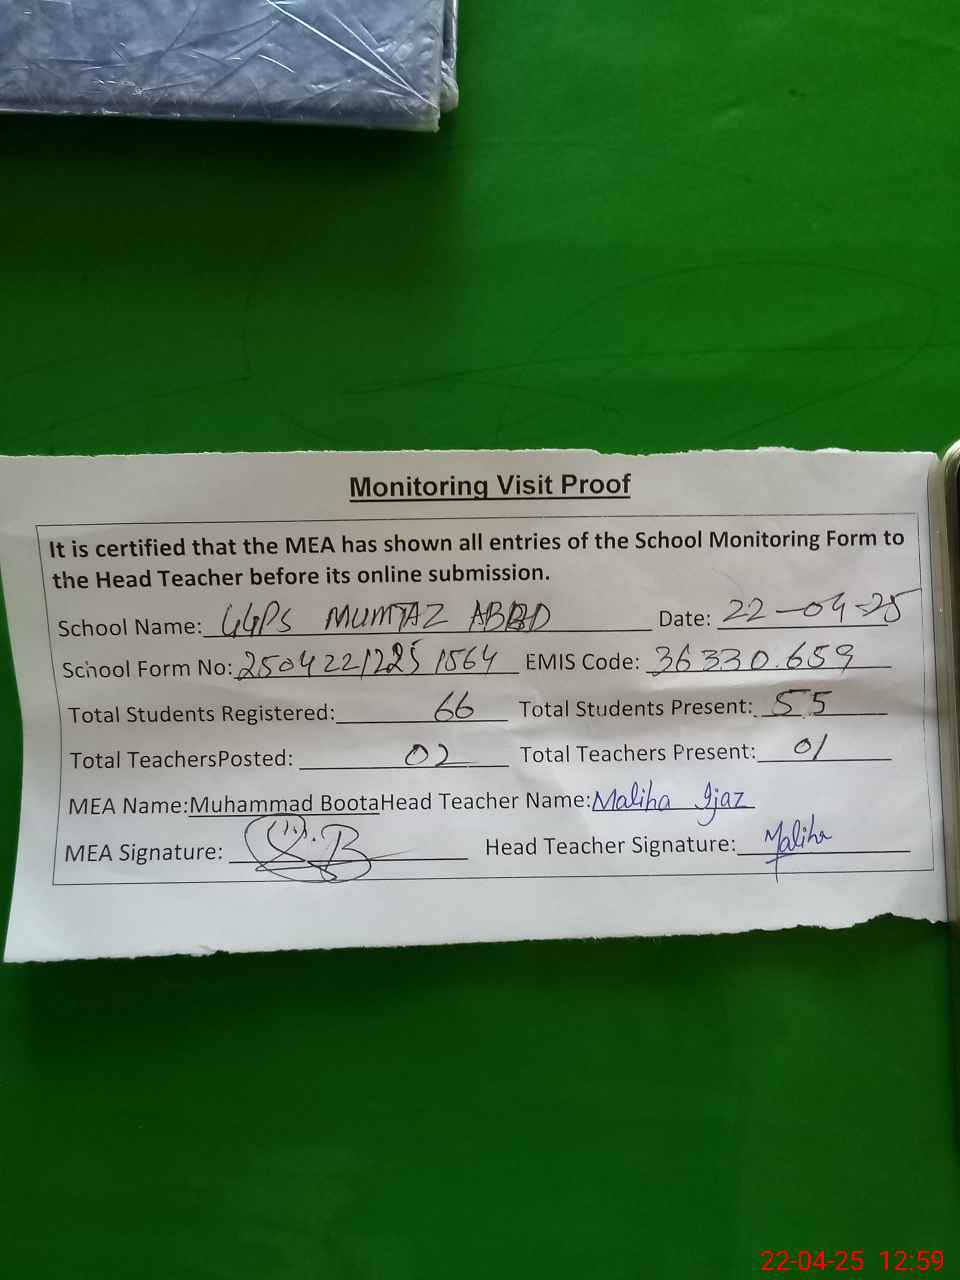 Monitoring Visit Proof
It is certified that the MEA has shown all entries of the School Monitoring Form to
the Head Teacher before its online submission.
School Name: GGPS MUMTAZ ABBD Date: 22-04-25
School Form No: 25042212251564 EMIS Code: 36330659
Total Students Registered: 66 Total Students Present: 55
Total TeachersPosted: 02 Total Teachers Present: 01
MEA Name:Muhammad BootaHead Teacher Name: Maliha Ijaz
MEA Signature: Head Teacher Signature: Maliha
22-04-25 12:59